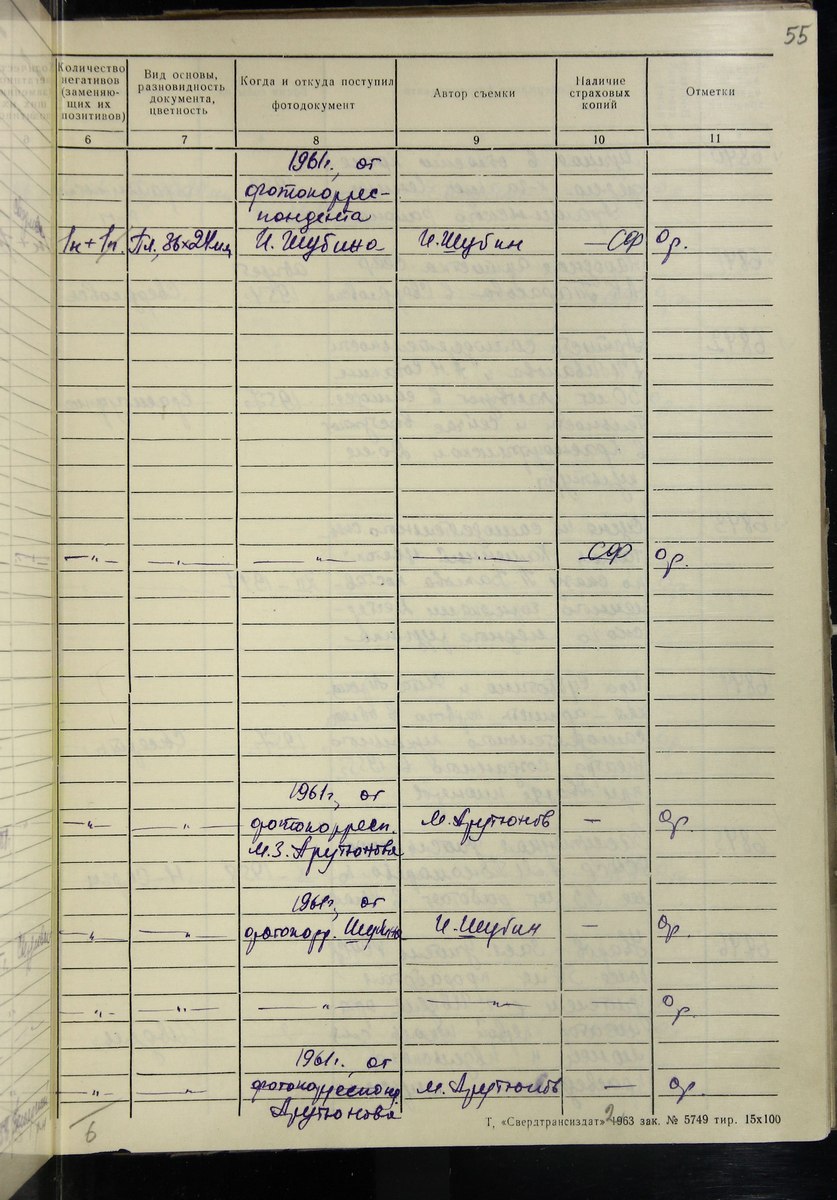 55
Количество негативов (заменяющих их позитивов)
Вид основы, разновидность документа, цветность
Когда и откуда поступил фотодокумент
Автор съемки
Наличие страховых копий
Отметки
6 7 8 9 10 11
1961г., от
фотокоррес-
пондента
1н+1п. Пл., 36х24мм И. Шубина И. Шубин — СФ Ор.
—„— —„— —„— —„— СФ Ор.
1961г., от
—„— —„— фотокорресп. М. Арутюнов — Ор.
М.З. Арутюнова
1961г., от
—„— —„— фотокорр. Шубина И. Шубин — Ор.
—„— —„— —„— —„— Ор.
1961г., от
—„— —„— фотокорреспонд. М. Арутюнов — Ор.
Арутюнова
6
Т, «Свердтрансиздат» 1963 зак. № 5749 тир. 15х100